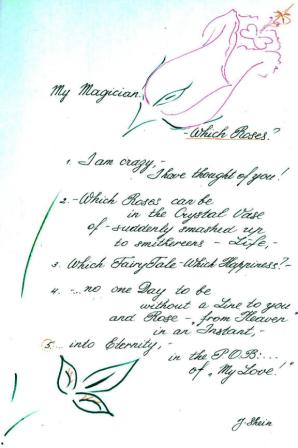 My Magician.
-Which Roses?
1. I am crazy,-
I have thought of you!
2.-Which Roses can be
in the Crystal Vase
of-suddenly smashed up
to smithereens - Life,-
3. Which FairyTale-Which Happiness?-
4. -... no one Day to be
without a Line to you
and Rose-„from Heaven"
in an Instant,-
5... into Eternity,-
in the P.O.B:...
of „My Love!"
J. Shein